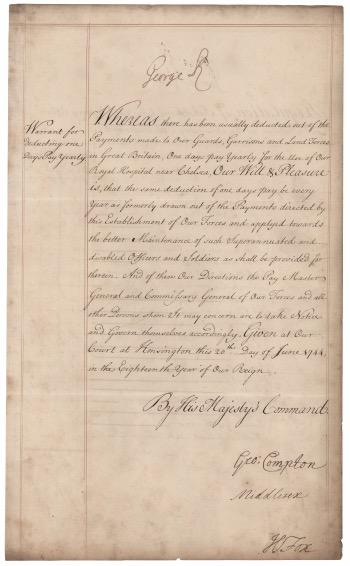 George R
Warrant for
deducting one
Days Pay Yearly
Whereas there has been usually deducted out of the
Payments made to Our Guards, Garrisons and Land Forces
in Great Britain, One days pay Yearly for the Use of Our
Royal Hospital near Chelsea, Our Will & Pleasure
is, that the same deduction of one days pay be every
Year as formerly drawn out of the Payments directed by
this Establishment of Our Forces and applyed towards
the better Maintenance of such Superannuated and
disabled Officers and Soldiers as shall be provided for
therein. And of these Our Directions the Pay Master
General and Commissary General of Our Forces and all
other Persons whom It may concern are to take Notice
and Govern themselves accordingly. Given at Our
Court at Kensington this 20th Day of June 1744
in the Eighteenth Year of Our Reign.
By His Majesty's Command.
Geo: Compton
Middlesex
H Fox